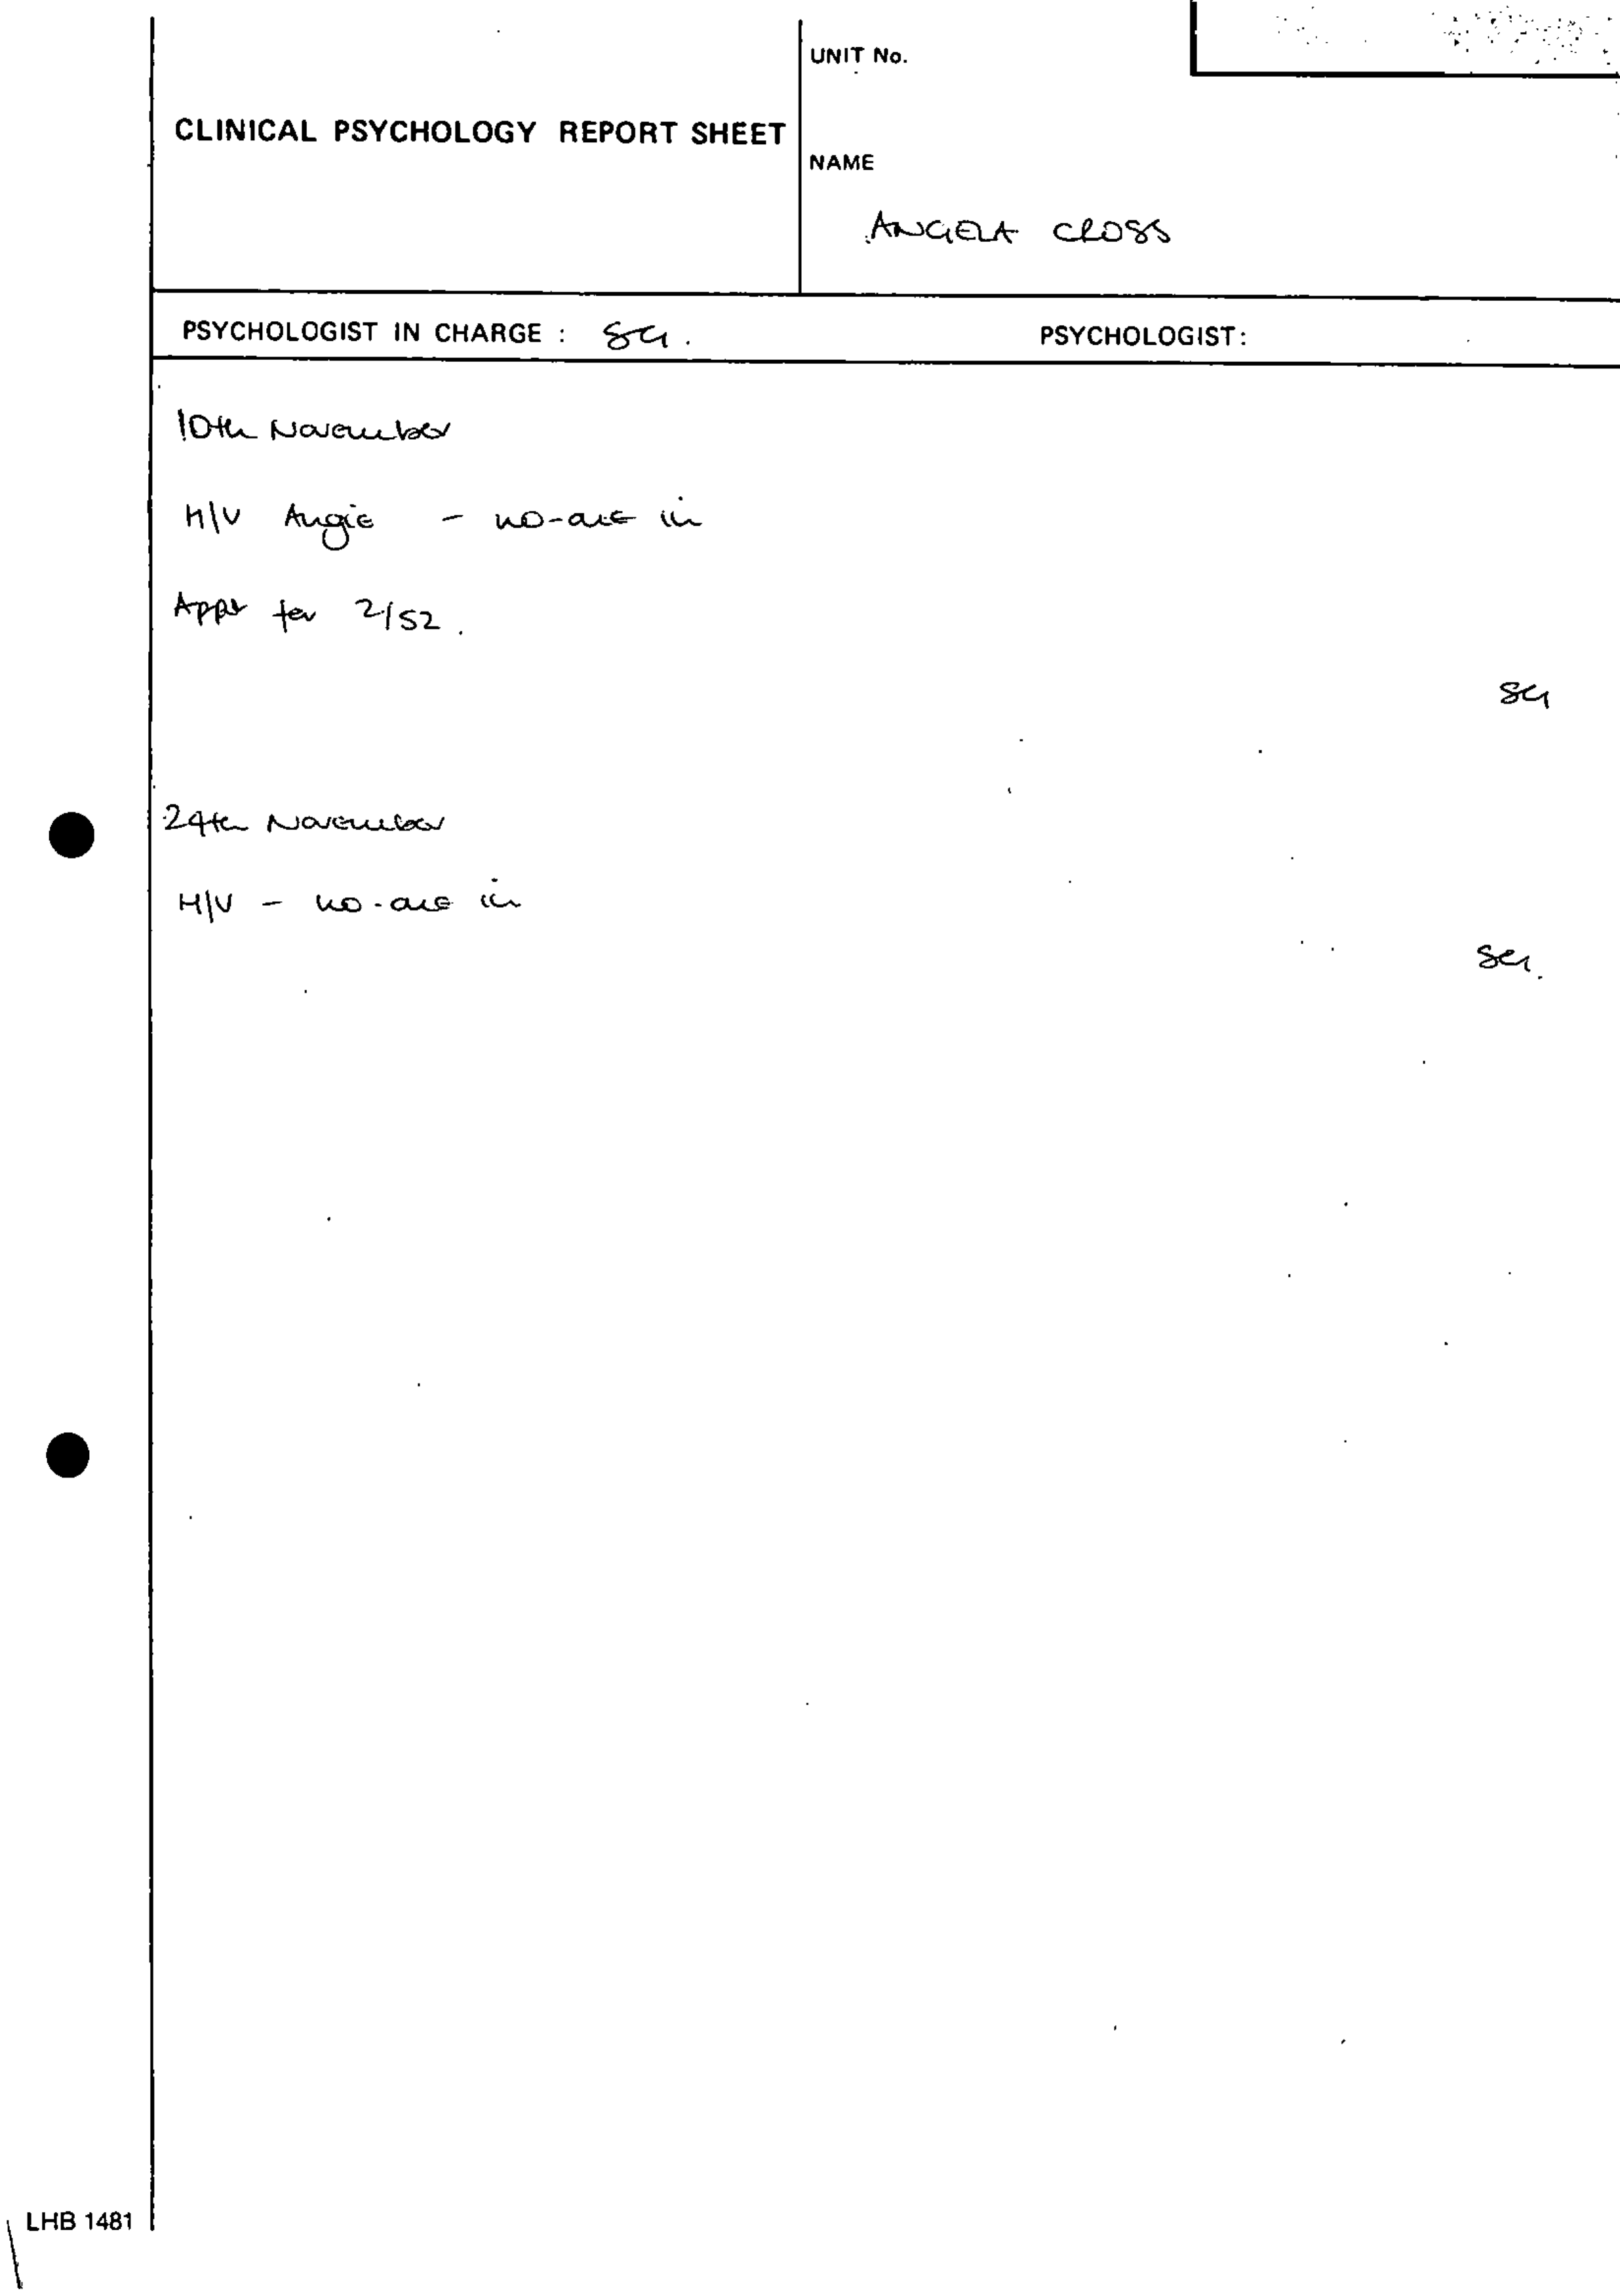 UNIT No.
CLINICAL PSYCHOLOGY REPORT SHEET
NAME
ANGELA CROSS
PSYCHOLOGIST IN CHARGE : SG.
PSYCHOLOGIST:
10th November
H/V Angie - no-one in
Appt for 2/52.
SG
24th November
H/V - no-one in
SG.
LHB 1481